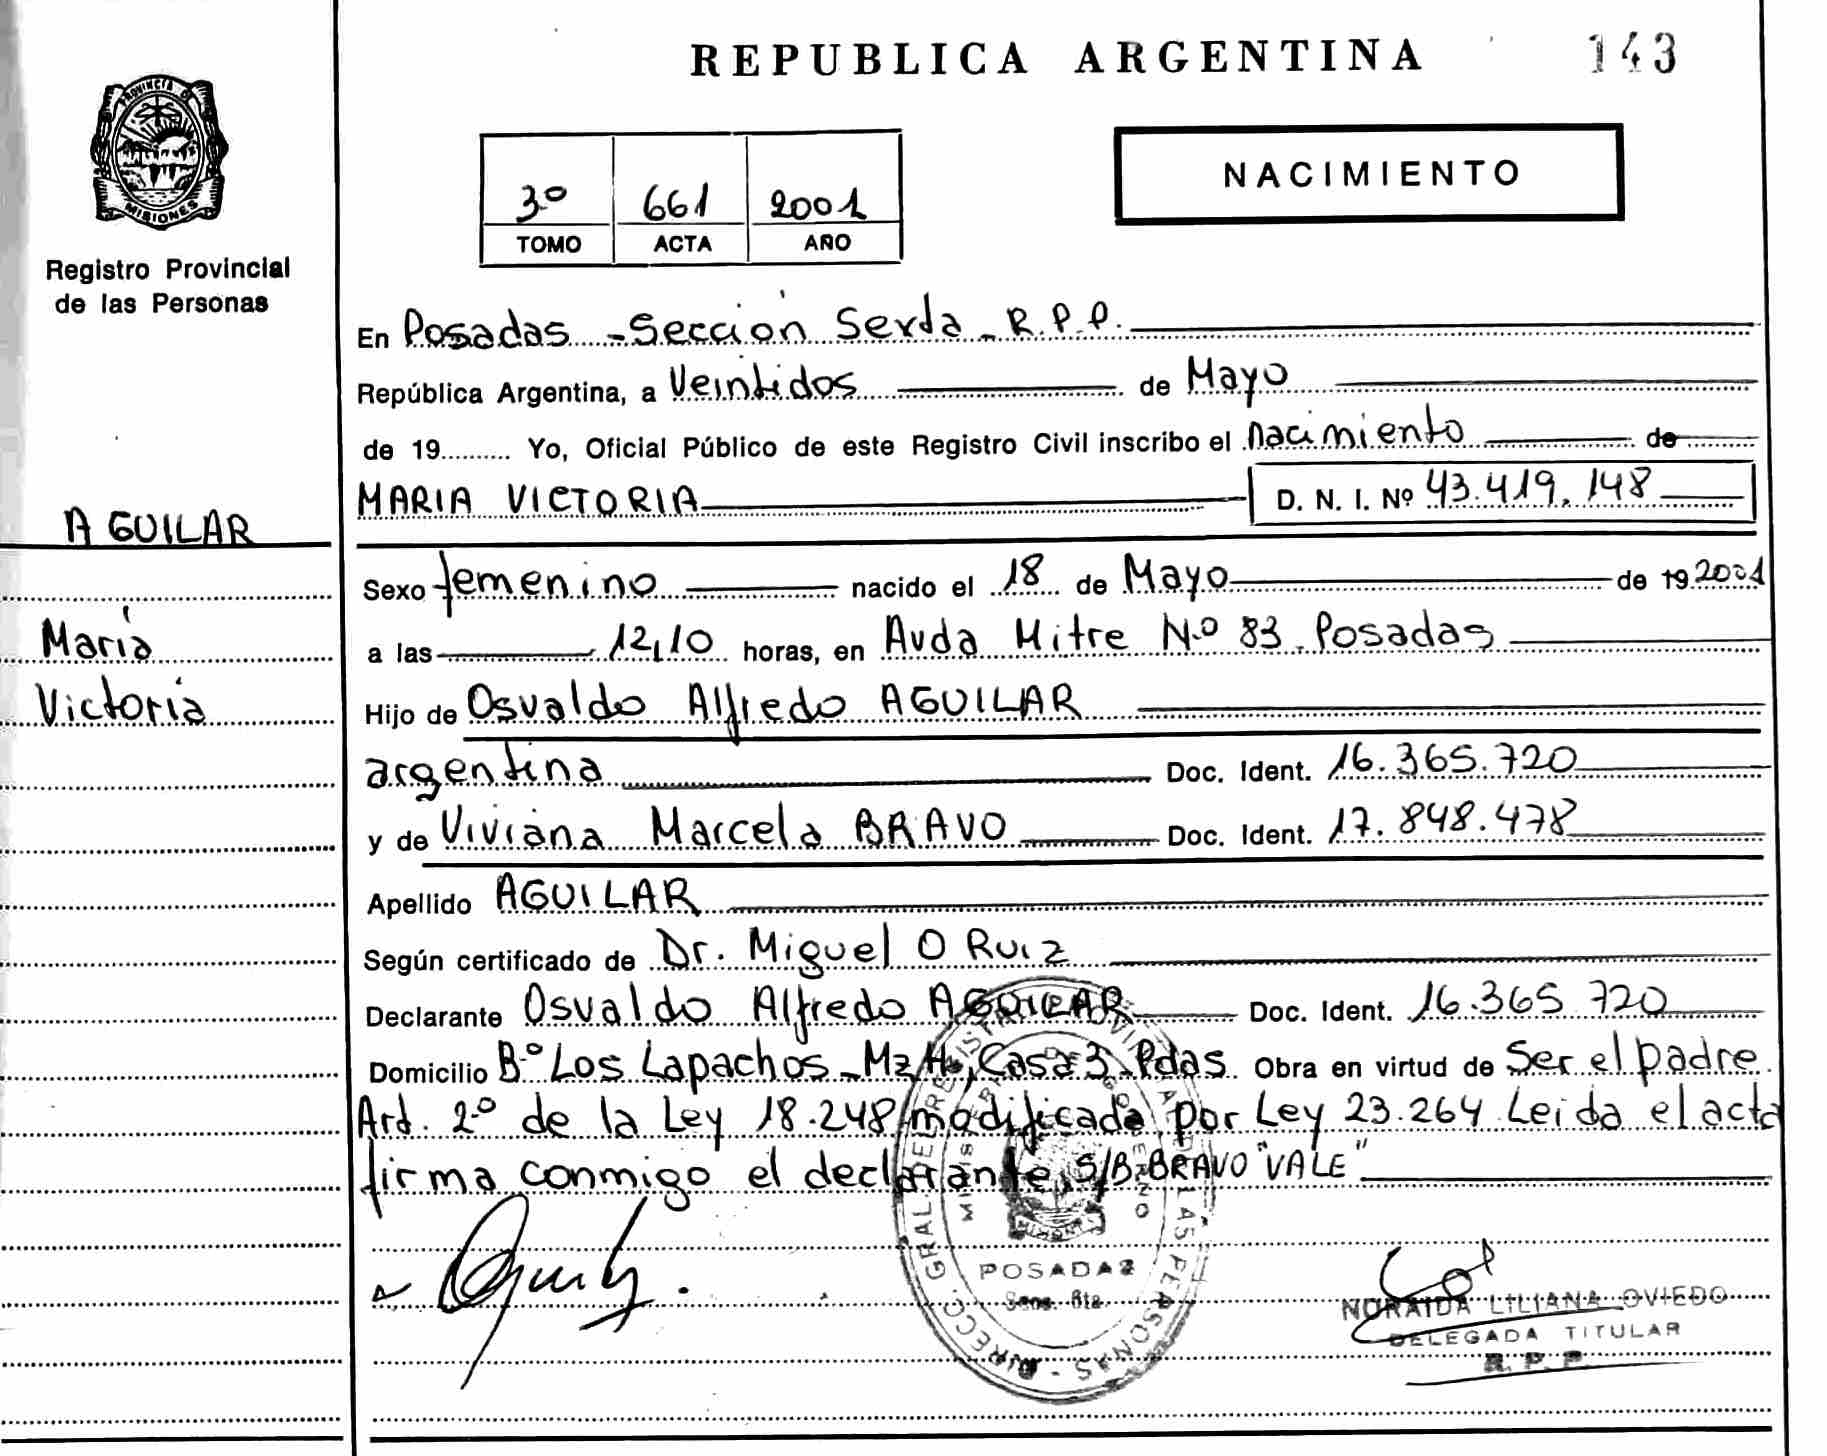 REPUBLICA ARGENTINA 143
PROVINCIA DE
MISIONES
Registro Provincial
de las Personas
NACIMIENTO
3º 661 2001
TOMO ACTA AÑO
En Posadas - Sección Sexta - R.P.P.
República Argentina, a Veintidos de Mayo
de 19......... Yo, Oficial Público de este Registro Civil inscribo el nacimiento de
MARIA VICTORIA D. N. I. Nº 43.419.148
AGUILAR
María
Victoria
Sexo femenino nacido el 18 de Mayo de 19 2001
a las 12,10 horas, en Avda Mitre Nº 83 - Posadas
Hijo de Osvaldo Alfredo AGUILAR
argentina Doc. Ident. 16.365.720
y de Viviana Marcela BRAVO Doc. Ident. 17.848.478
Apellido AGUILAR
Según certificado de Dr. Miguel O Ruiz
Declarante Osvaldo Alfredo AGUILAR Doc. Ident. 16.365 720
Domicilio Bº Los Lapachos - Mz H, Casa 3 - Pdas. Obra en virtud de Ser el padre.
Art. 2º de la Ley 18.248 modificada por Ley 23.264 Leida el acta
firma conmigo el declarante, S/B-BRAVO "VALE"
DIRECC. GRAL. DEL REGISTRO PROVINCIAL DE LAS PERSONAS
MINISTERIO DE GOBIERNO
MISIONES
POSADAS
Secc. 6ta.
NORAIDA LILIANA OVIEDO
DELEGADA TITULAR
R. P. P.